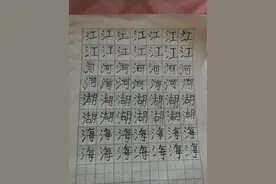 江江江江江江江
江江江江江江江
河河河河河河河
河河河河河河河
湖湖湖湖湖湖湖
湖湖湖湖湖湖湖
海海海海海海海
海海海海海海海